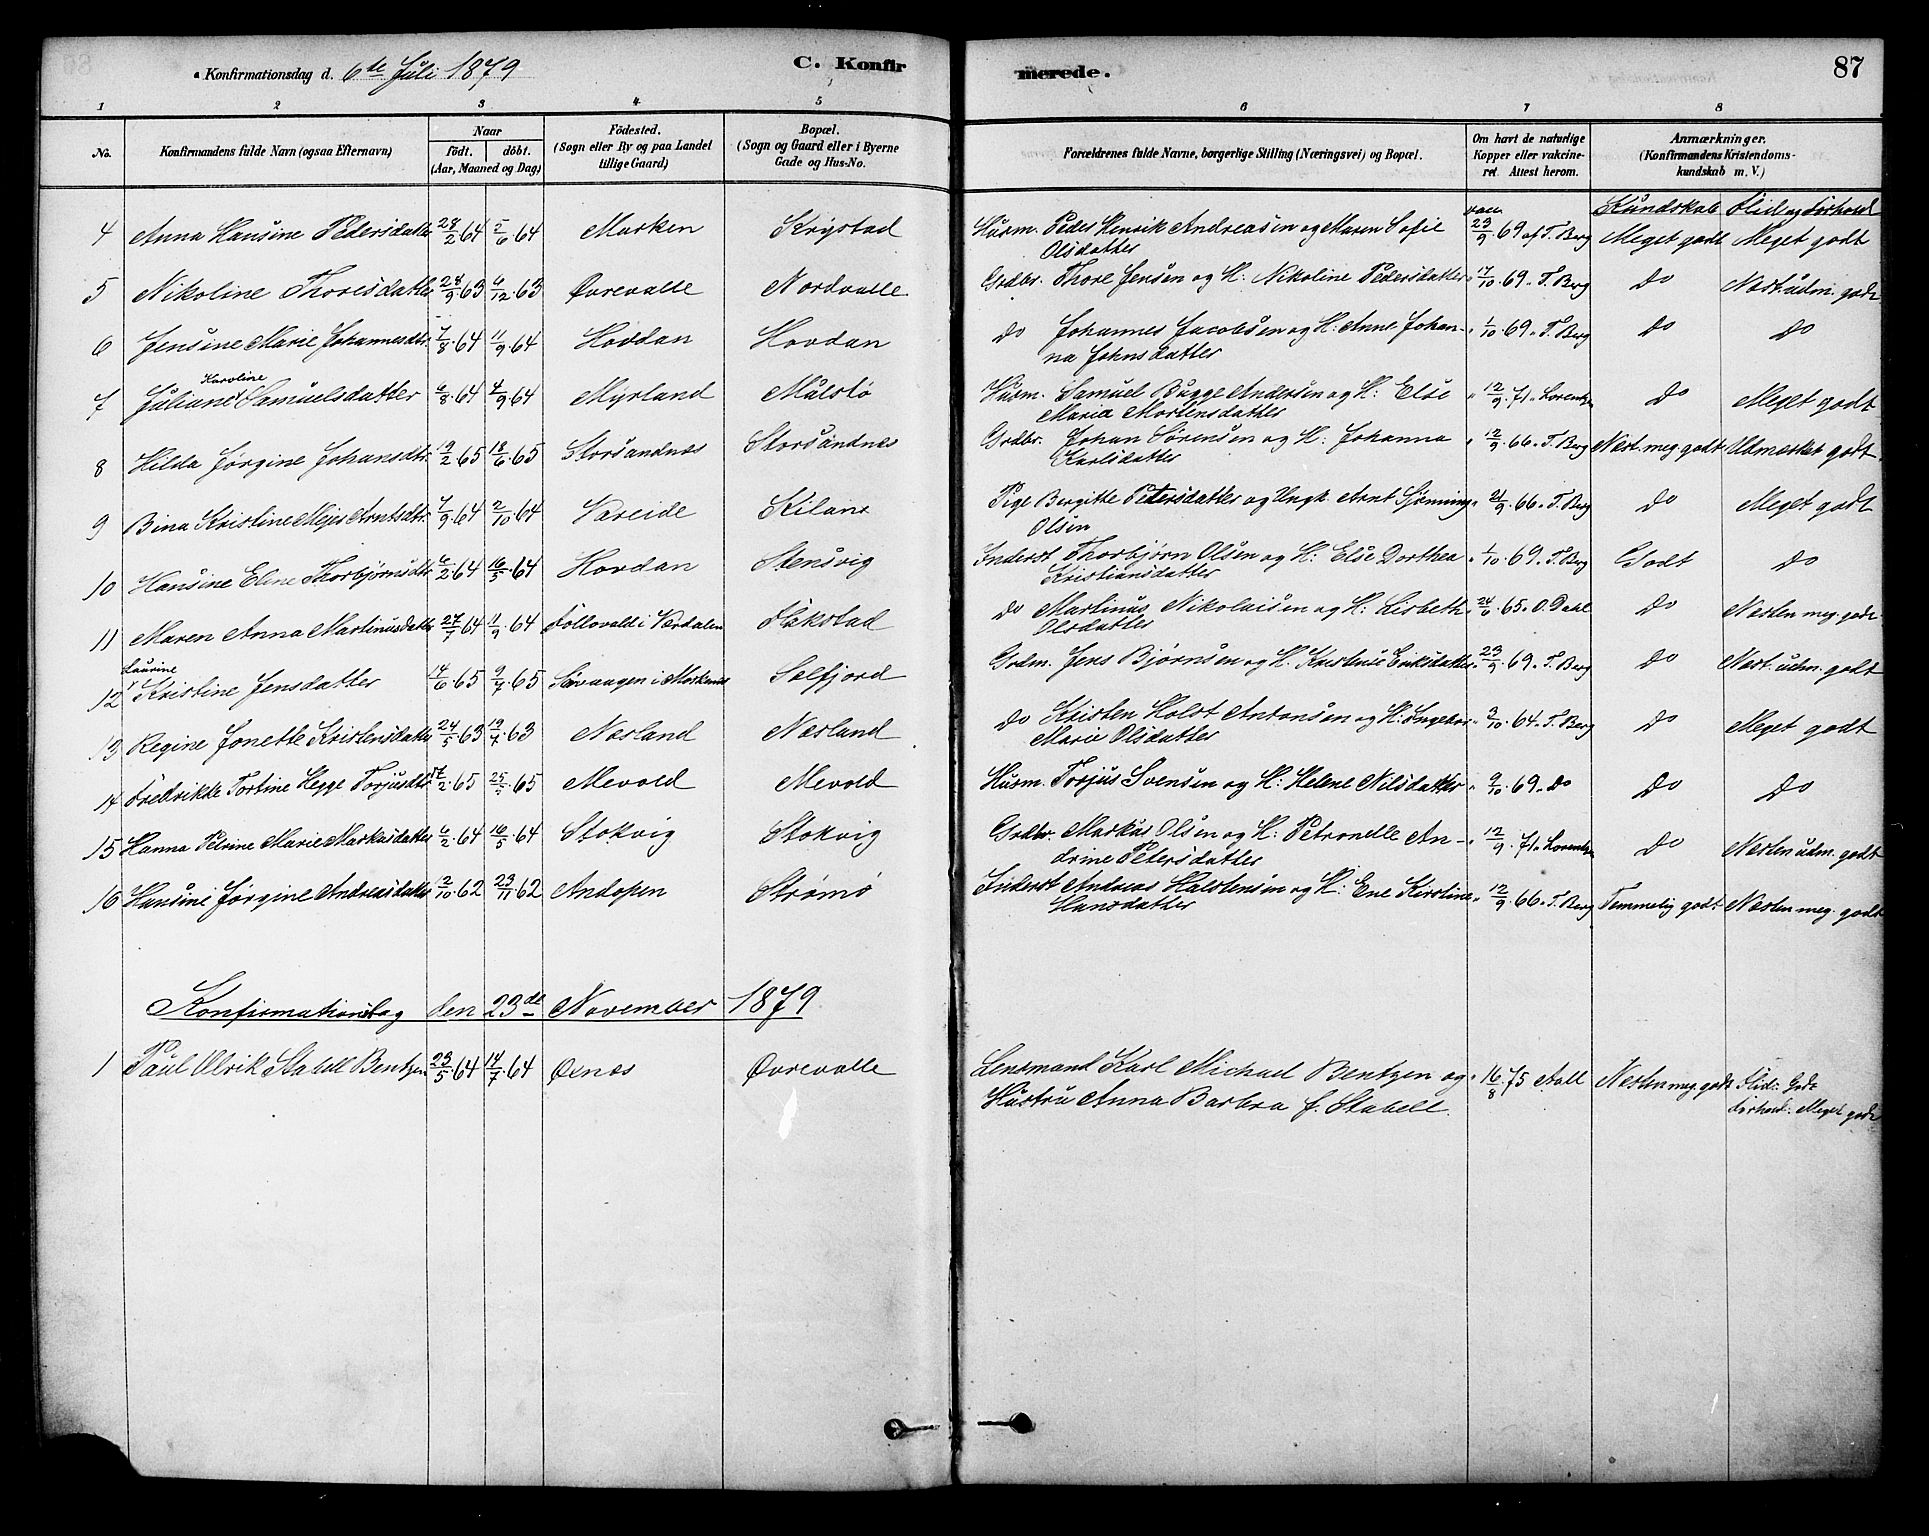 Konfirmationsdag d. 6te Juli 1879 C. Konfirmerede. 87
1 2 3 4 5 6 7 8
No. Konfirmandens fulde Navn (ogsaa Efternavn) Naar födt. döbt. (Aar, Maaned og Dag) Födested. (Sogn eller By og paa Landet tillige Gaard) Bopæl. (Sogn og Gaard eller i Byerne Gade og Hus-No. Forældrenes fulde Navne, borgerlige Stilling (Næringsvei) og Bopæl. Om havt de naturlige Kopper eller vakcineret. Attest herom. Anmærkninger. (Konfirmandens Kristendomskundskab m. V.)
Kundskab Flid og Forhold
4 Anna Hansine Pedersdatter 28/2 64 5/6 64 Marken Krystad Husm. Peder Henrik Andreasen og Maren Sofie vac. 23/9 69 af T. Berg Meget godt Meget godt
Olsdatter
5 Nikoline Thoresdatter 28/9 63 6/12 63 Øvrevalle Nordvalle Grdbr. Thore Jensen og H: Nikoline Pedersdatter " 17/10 69 " T. Berg do Næst. udm. godt
6 Jensine Marie Johannesdtr. 7/8 64 11/9 64 Hovdan Hovdan do Johannes Jacobsen og H: Anne Johan- " 1/10 69 " T. Berg do do
na Johnsdatter
Karoline
7 Juliane Samuelsdatter 6/8 64 4/9 64 Myrland Målstø Husm. Samuel Bugge Andersen og H: Else " 12/9 71 " Lorentzen do Meget godt
Maria Mortensdatter
8 Hilda Jørgine Johansdtr. 19/2 65 18/6 65 Storsandnes Storsandnes Grdbr. Johan Sørensen og H: Johanna " 12/9 66 " T. Berg Næst. meg. godt Udmerket godt
Karlsdatter
9 Bina Kristine Mejer Arntsdtr. 7/9 64 2/10 64 Vareide Kilan Pige Bergitte Petersdatter og Ungk. Arnt Sjønning " 21/9 66 " T. Berg do Meget godt
Olsen
10 Hansine Eline Thorbjørnsdtr. 6/2 64 16/5 64 Hovdan Stensvig Inderst Thorbjørn Olsen og H: Else Dorthea " 1/10 69 " T. Berg Godt do
Kristiansdatter
11 Maren Anna Martinusdatter 27/7 64 11/9 64 Follovald i Værdalen Flakstad do Martinus Nikolaisen og H: Lisbeth " 24/6 65 " O. Dahl do Nesten meg. godt
Olsdatter
Laurine
12 Kristine Jensdatter 14/6 65 9/7 65 Sørvaagen i Moskenes Selfjord Grdm. Jens Bjørnsen og H: Kristense Eriksdatter " 23/9 69 " T. Berg do Næst. udm. godt
13 Regine Jonette Kristensdatter 24/5 63 19/7 63 Nesland Nesland do Kristen Holst Antonsen og H: Ingebor " 9/10 64 " T. Berg do Meget godt
Marie Olsdatter
14 Fredrikke Tortine Hegge Torjusdtr 17/2 65 25/5 65 Mevold Mevold Husm. Torjus Svensen og H: Helene Nilsdatter " 9/10 69 " do do do
15 Hanna Petrine Marie Markusdatter 6/2 64 16/5 64 Stokvig Stokvig Grdbr. Markus Olsen og H: Petronelle An- " 12/9 71 " Lorentzen do Nesten udm. godt
drine Petersdatter
16 Hansine Jørgine Andreasdatter 2/10 62 23/11 62 Andopen Strømø Inderst Andreas Halstensen og H: Ene Kirstine " 12/9 66 " T. Berg Temmelig godt Nesten meg. godt
Hansdatter
Konfirmationsdag den 23de November 1879
1 Paul Ulrik Stabell Bentzen 23/5 64 14/7 64 Øxnes Øvrevalle Lensmand Karl Michael Bentzen og " 16/8 75 Aall Nesten meg. godt Flid: Godt
Hustru Anna Barbra f. Stabell. Forhold: Meget godt